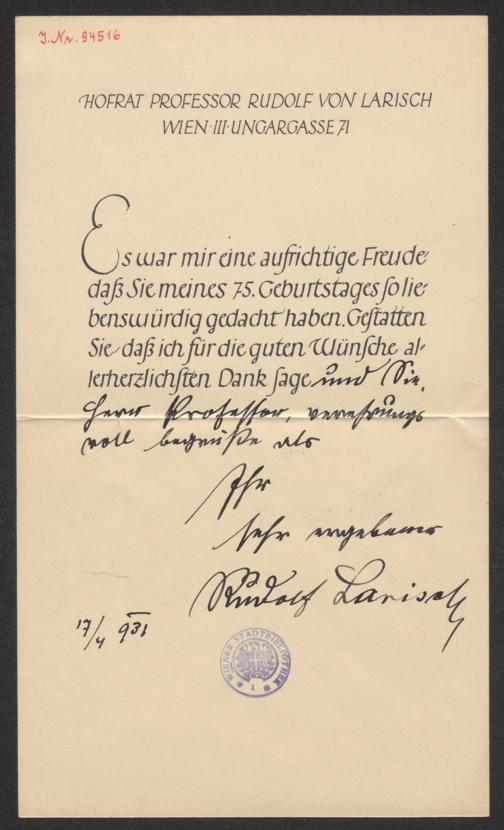 J.Nr. 94516
HOFRAT PROFESSOR RUDOLF VON LARISCH
WIEN·III·UNGARGASSE 71
Es war mir eine aufrichtige Freude
daß Sie meines 75. Geburtstages so lie-
benswürdig gedacht haben. Gestatten
Sie daß ich für die guten Wünsche al-
lerherzlichsten Dank sage und Sie,
Herr Professor, verehrungs
voll begrüße als
Ihr
sehr ergebener
Rudolf Larisch
17/4 931
WIENER STADTBIBLIOTHEK
1